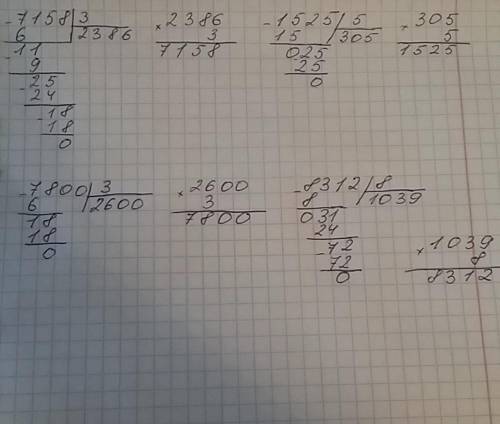 -7158|3
6 2386
-11
9
-25
24
-18
-18
0
×2386
3
7158
-1525|5
15 305
025
25
0
×305
5
1525
-7800|3
6 2600
18
18
0
×2600
3
7800
-8312|8
8 1039
031
24
-72
72
0
×1039
8
8312